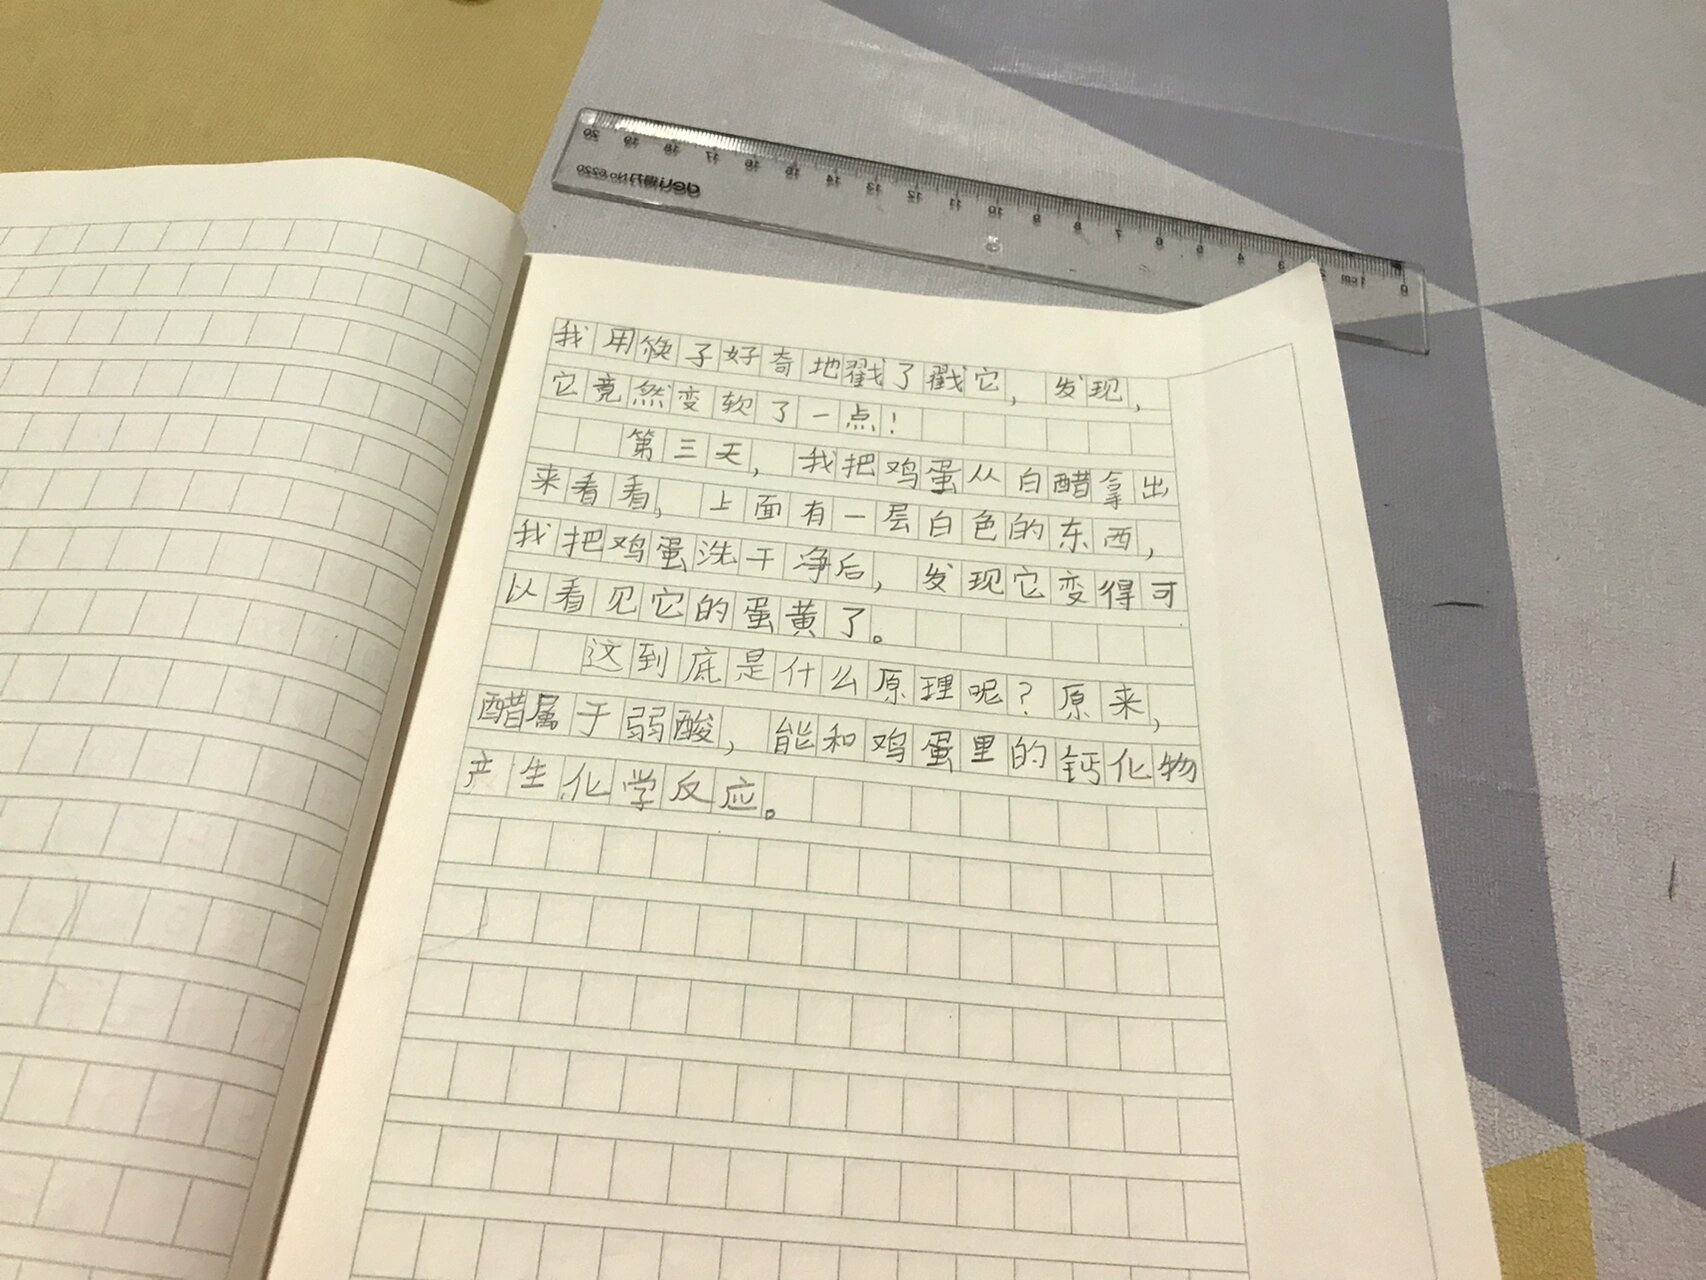 我用筷子好奇地戳了戳它，发现，
它竟然变软了一点！
第三天，我把鸡蛋从白醋拿出
来看看，上面有一层白色的东西，
我把鸡蛋洗干净后，发现它变得可
以看见它的蛋黄了。
这到底是什么原理呢？原来，
醋属于弱酸，能和鸡蛋里的钙化物
产生化学反应。
20 19 18 17 16 15 14 13 12 11 10 9 8 7 6 5 4 3 2 1cm 0
deli得力 No.6220